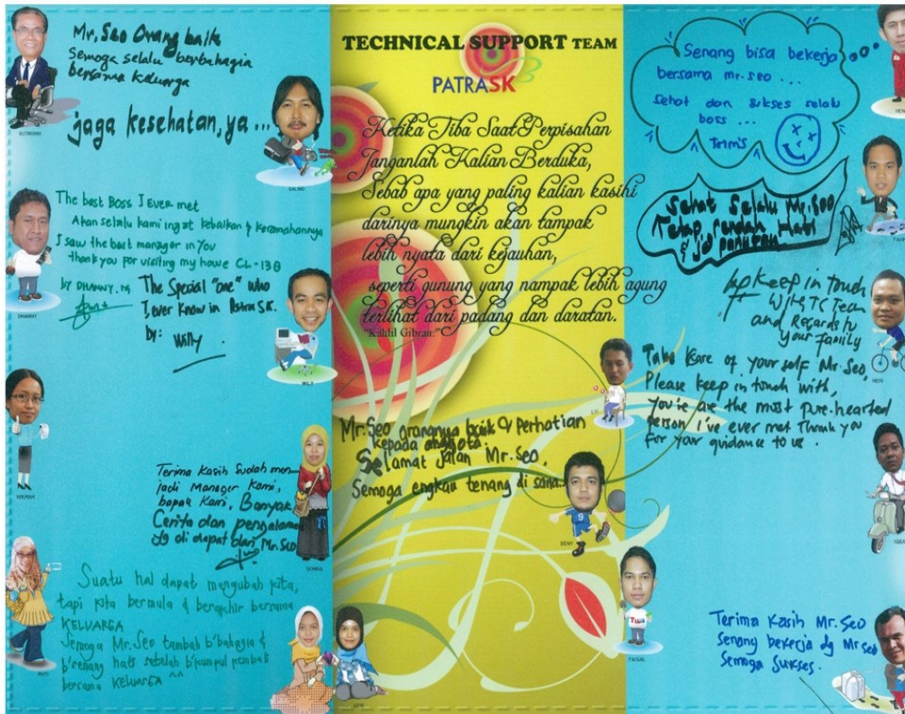 Mr. Seo Orang baik
Semoga selalu berbahagia
bersama keluarga
jaga kesehatan, ya...
SUTRISNO
GALIND
The best Boss I ever met
Akan selalu kami ingat kebaikan & keramahannya
I saw the best manager in You
thank you for visiting my house CL-138
by DHANNY. M
DHANNY
The Special "one" who
I ever know in Patra S.K.
by: Willy
WILLY
Terima kasih sudah men-
jadi Manager kami,
bapak kami, Banyak
Cerita dan pengalaman
yg di dapat dari Mr. Seo
Suatu hal dapat mengubah kita,
tapi kita bermula & berakhir bersama
KELUARGA
Semoga Mr. Seo tambah b'bahagia &
b'senang hati setelah b'kumpul kembali
bersama KELUARGA ^^
PUTI
TECHNICAL SUPPORT TEAM
PATRASK
Ketika Tiba Saat Perpisahan
Janganlah Kalian Berduka,
Sebab apa yang paling kalian kasihi
darinya mungkin akan tampak
lebih nyata dari kejauhan,
seperti gunung yang nampak lebih agung
terlihat dari padang dan daratan.
"Kahlil Gibran"
Mr. Seo orangnya baik & Perhatian
kepada anggota.
Selamat jalan Mr. Seo,
Semoga engkau tenang di sana..
DENY
FAISAL
Senang bisa bekerja
bersama mr. seo ...
sehat dan sukses selalu
boss ...
Trim's
Sehat Selalu Mr. Seo
Tetap rendah Hati
& jd panutan
Keep in touch
with TC Team
and Regards to
your family
Take kare of your self Mr. Seo,
Please keep in touch with,
you're are the most pure-hearted
person I've ever met Thank you
for your guidance to us.
Terima Kasih Mr. Seo
senang bekerja dg Mr seo
Semoga Sukses.